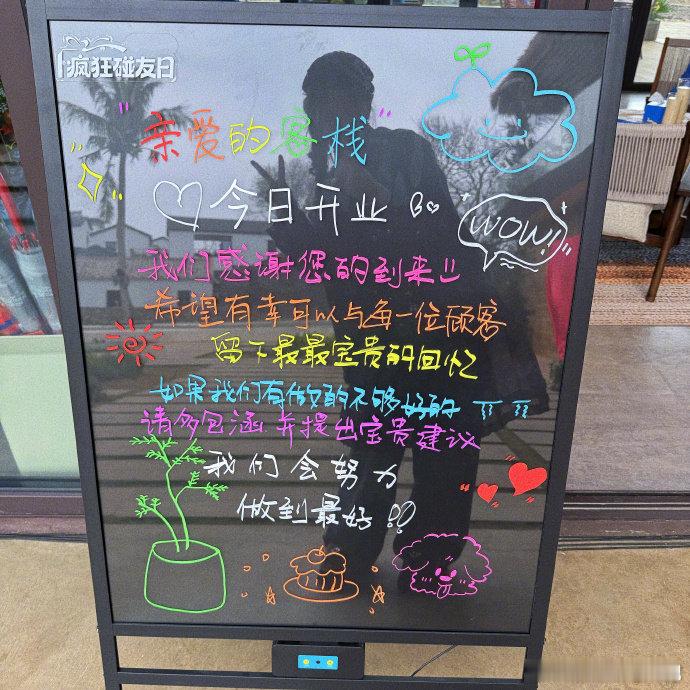 疯狂碰友日
亲爱的客栈
今日开业
WOW!
我们感谢您的到来!!
希望有幸可以与每一位顾客
留下最最宝贵的回忆
如果我们有做的不够好的
请多包涵并提出宝贵建议
我们会努力
做到最好!!